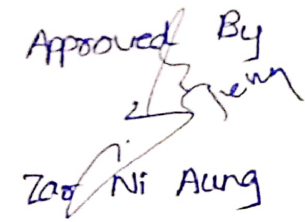 Approved By
Zar Ni Aung